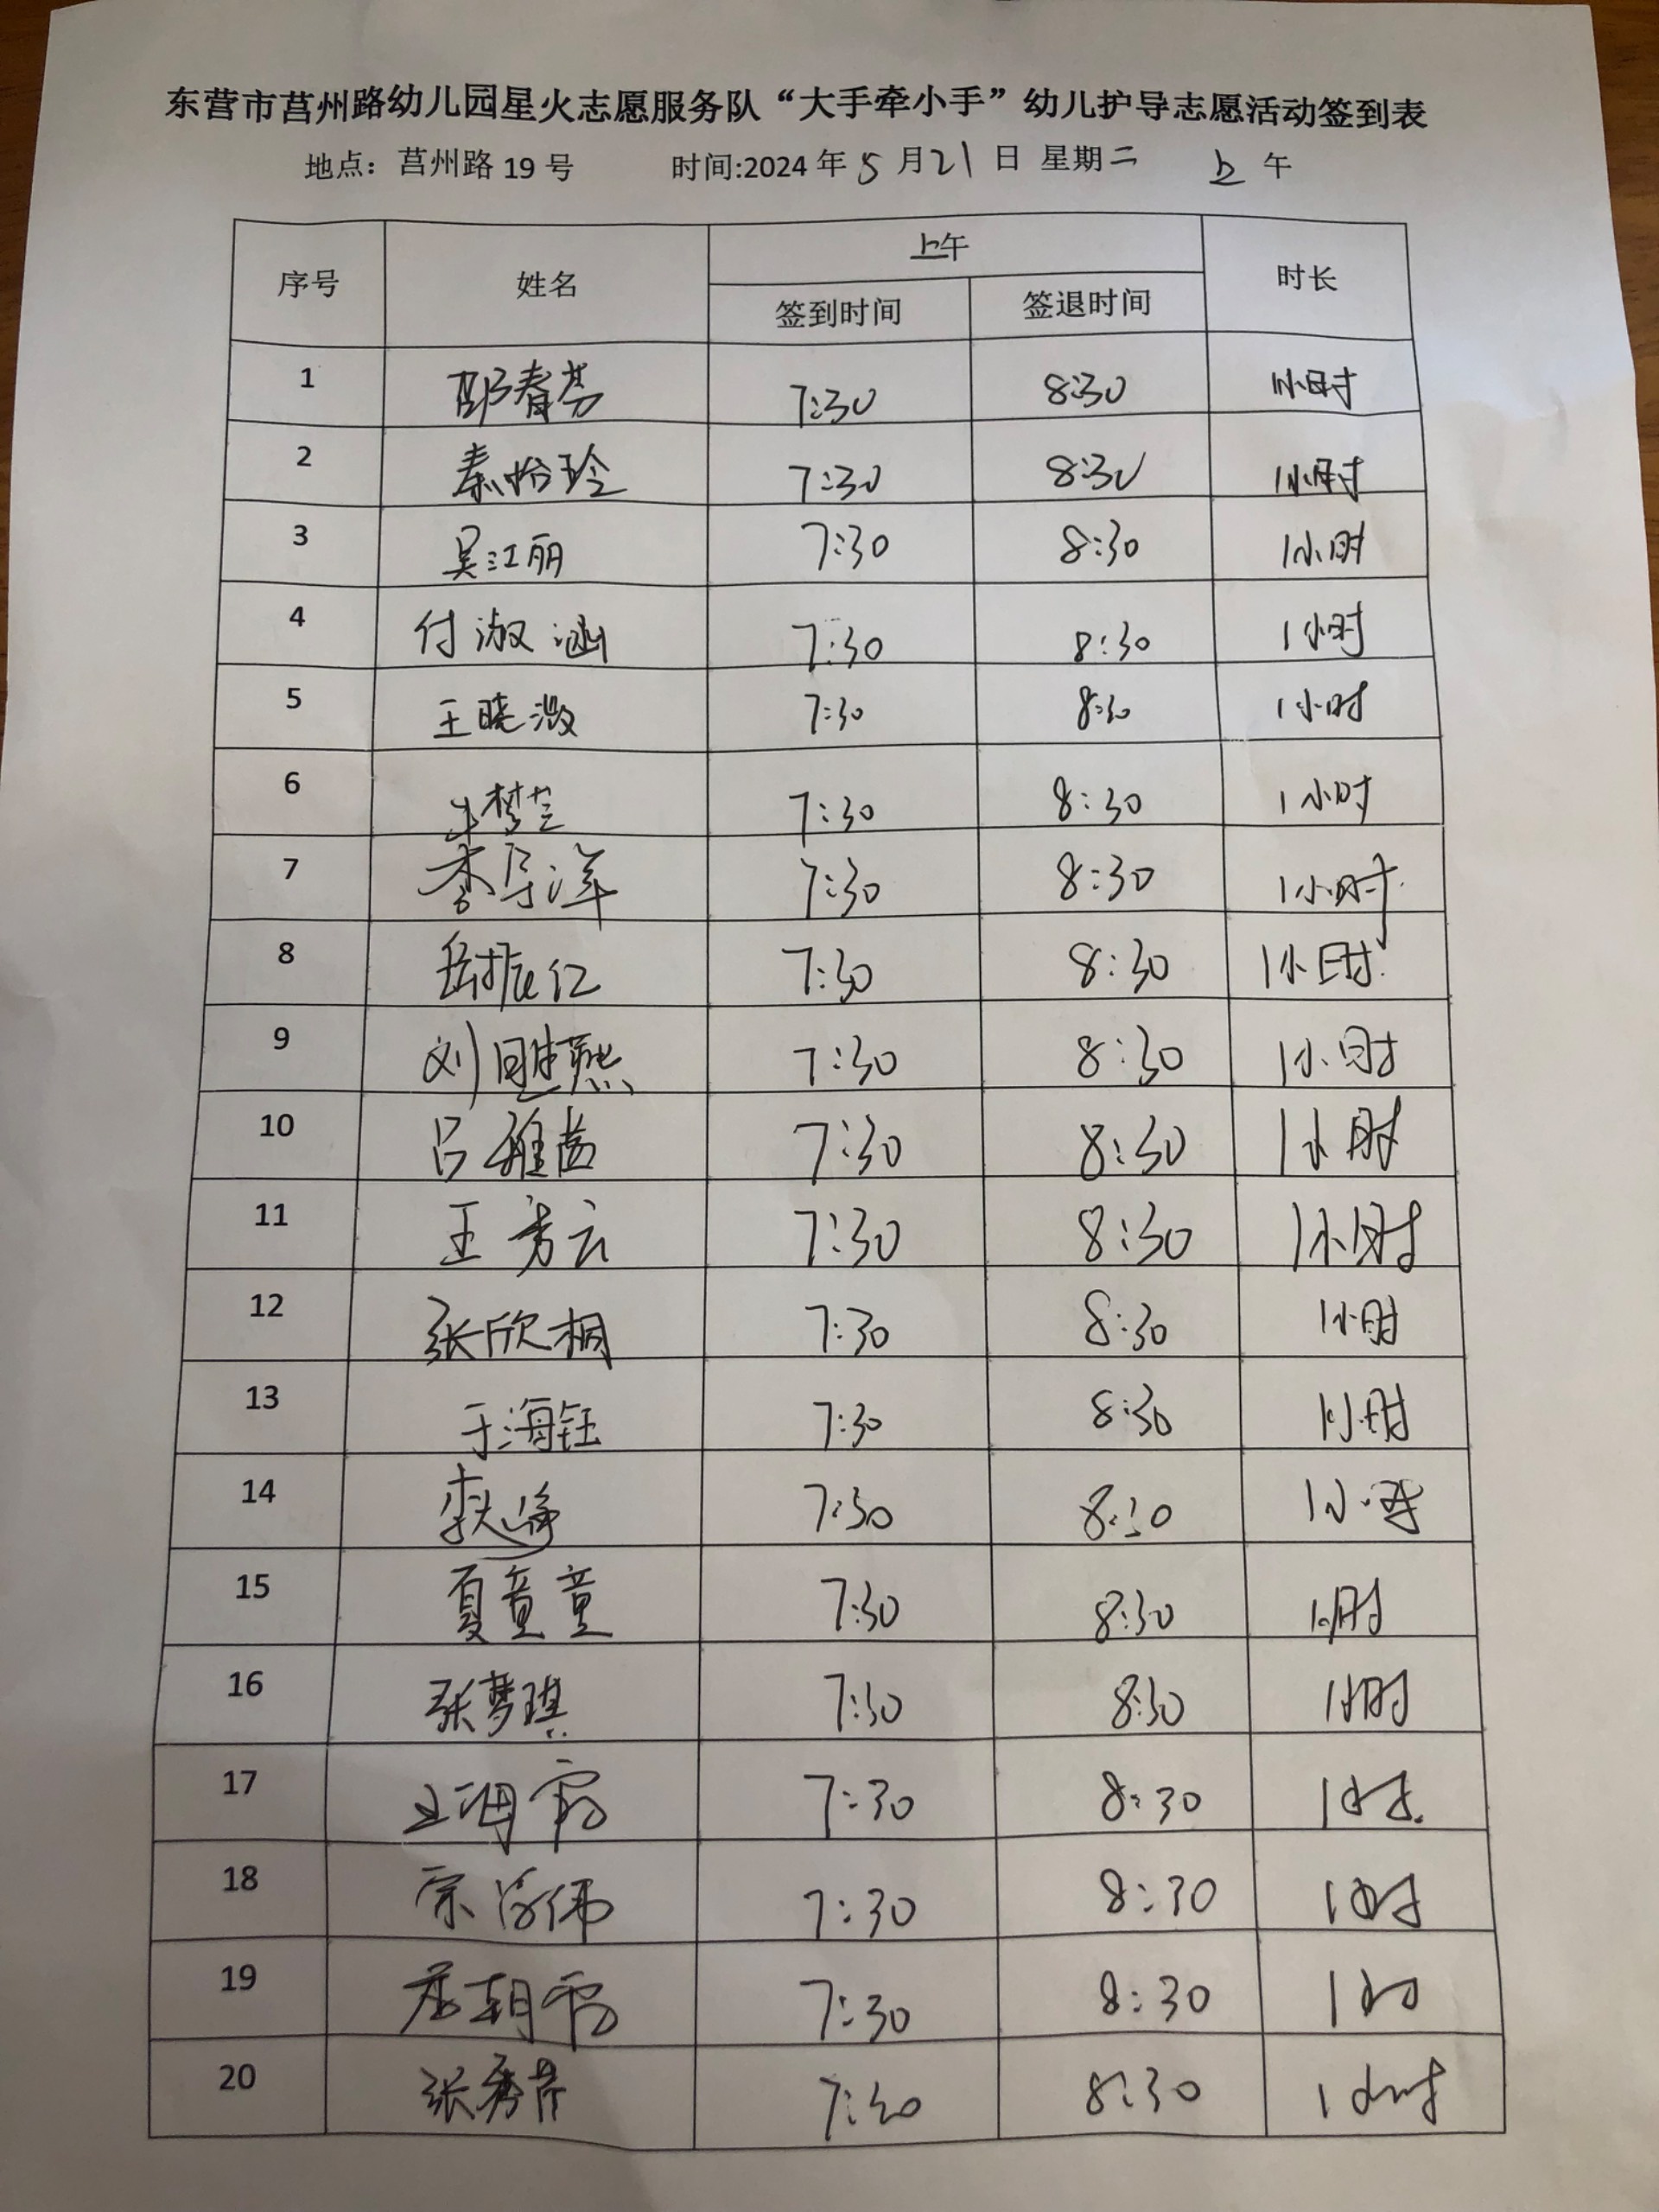 东营市莒州路幼儿园星火志愿服务队“大手牵小手”幼儿护导志愿活动签到表
地点：莒州路 19 号 时间:2024 年 5 月 21 日 星期二 上 午
序号 姓名 上午 时长
签到时间 签退时间
1 邵春芬 7:30 8:30 1小时
2 秦怡玲 7:30 8:30 1小时
3 吴江丽 7:30 8:30 1小时
4 付淑涵 7:30 8:30 1小时
5 王晓溦 7:30 8:30 1小时
6 7:30 8:30 1小时
7 李导洋 7:30 8:30 1小时
8 岳振仁 7:30 8:30 1小时
9 刘 7:30 8:30 1小时
10 吕雅茜 7:30 8:30 1小时
11 王秀云 7:30 8:30 1小时
12 张欣桐 7:30 8:30 1小时
13 于海钰 7:30 8:30 1小时
14 7:30 8:30 1小时
15 夏童童 7:30 8:30 1小时
16 张梦琪 7:30 8:30 1小时
17 7:30 8:30 1小时
18 7:30 8:30 1小时
19 7:30 8:30 1小时
20 张秀芹 7:30 8:30 1小时